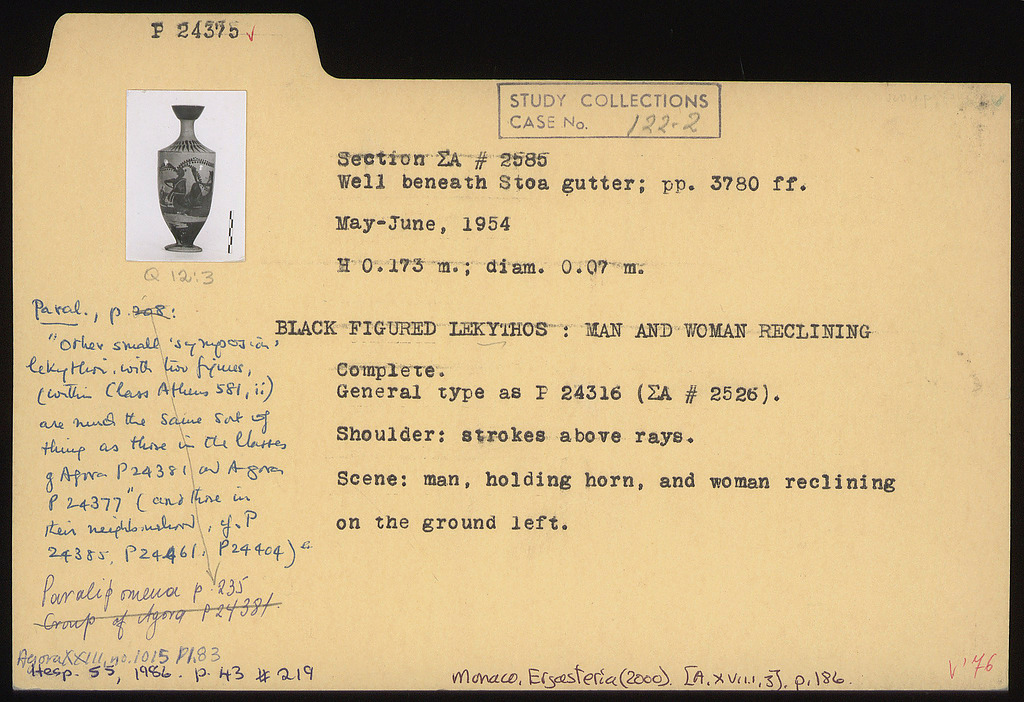 P 24375 ✓
STUDY COLLECTIONS
CASE No. 122-2
Section ΣA # 2585
Well beneath Stoa gutter; pp. 3780 ff.
May-June, 1954
H 0.173 m.; diam. 0.07 m.
Q 12:3
BLACK FIGURED LEKYTHOS : MAN AND WOMAN RECLINING
Complete.
General type as P 24316 (ΣA # 2526).
Shoulder: strokes above rays.
Scene: man, holding horn, and woman reclining
on the ground left.
Paral., p. 208:
"Other small 'symposion'
lekythoi, with two figures,
(within Class Athens 581, ii)
are much the same sort of
thing as those in the Classes
of Agora P 24381 and Agora
P 24377" (and those in
their neighbourhood, cf. P
24385, P24461, P24404)
Paralipomena p. 235
Group of Agora P 24381.
Agora XXIII, no. 1015 Pl. 83
Hesp. 55, 1986. p. 43 # 219
Monaco, Ergasteria (2000). [A.XVIII,3], p. 186.
√'76